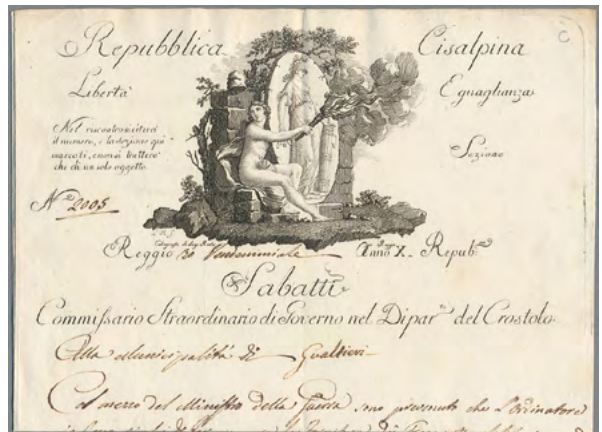 Repubblica Cisalpina
Libertà Eguaglianza
Nel riscontro si citerà
il numero, e la sezione quì
marcati, e non si tratterà
che di un solo oggetto.
Sezione
N.º 2005
Reggio 30 Vendemmiale Anno X. Repub.no
Sabatti
Commissario Straordinario di Governo nel Dipar.to del Crostolo
Alla Municipalità di Gualtieri
Col mezzo del Ministro della Guerra sono prevenuto che l'ordinatore